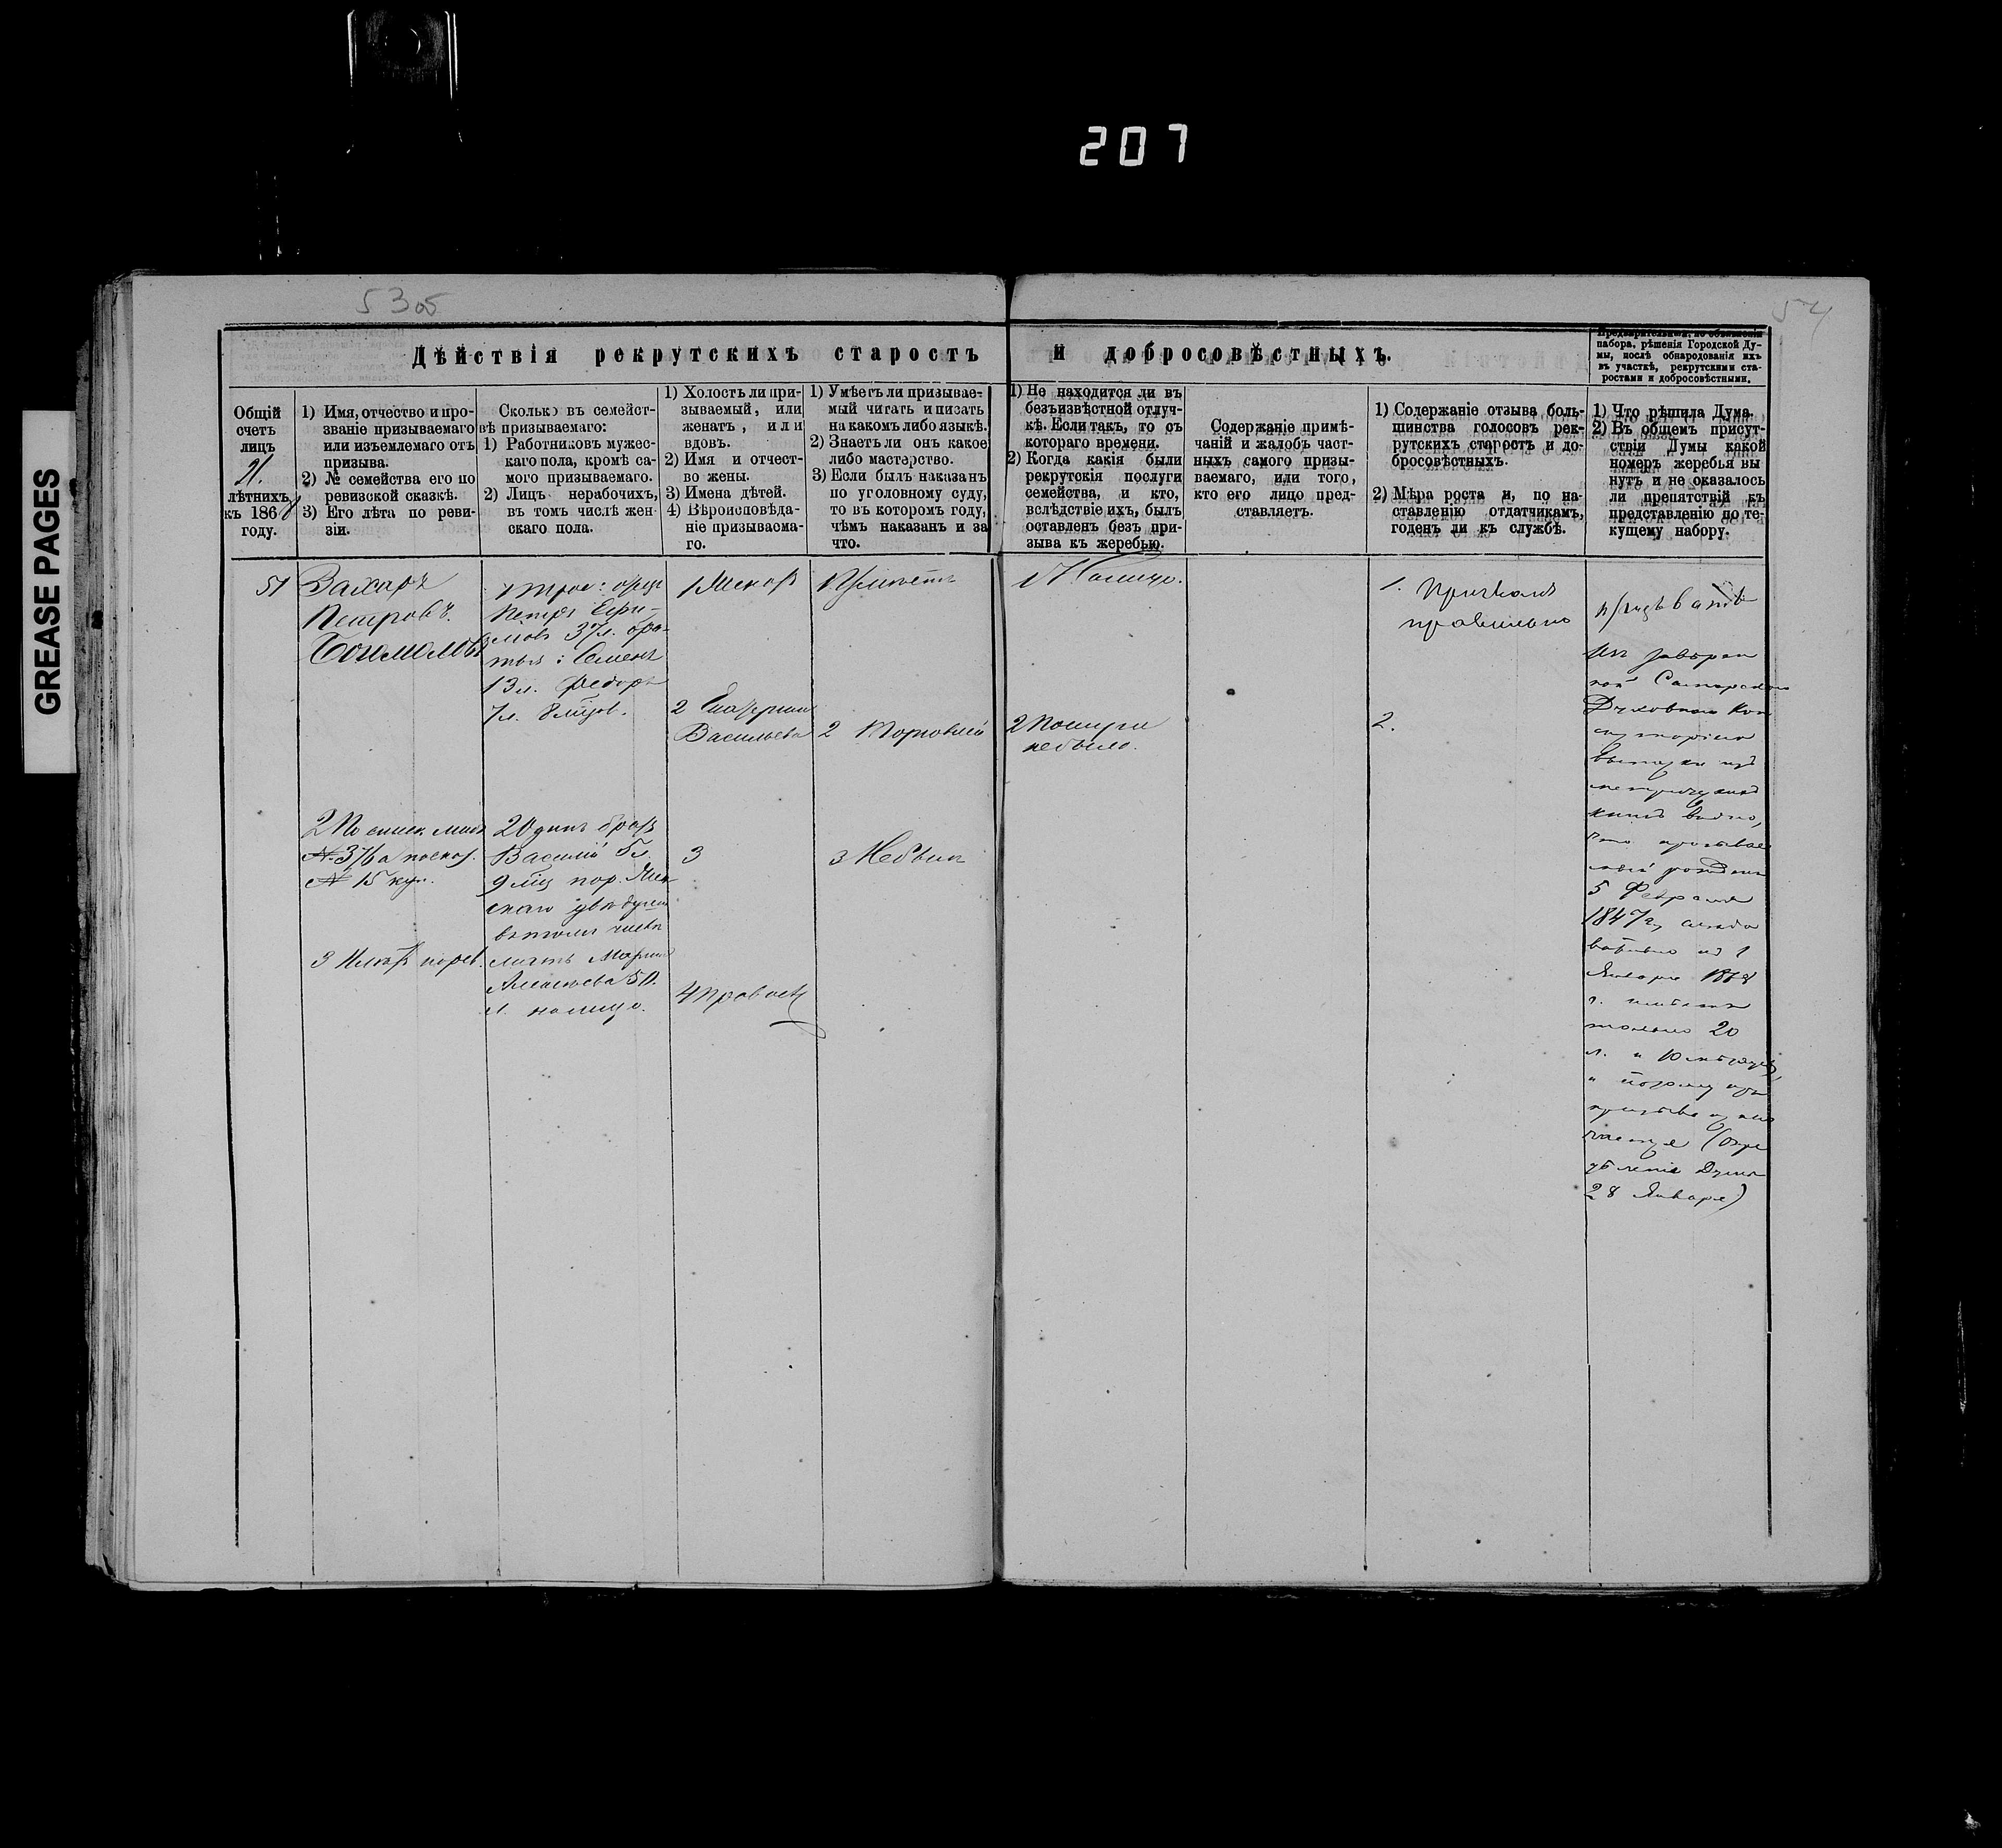 207
GREASE PAGES
53об
54
Дѣйствія рекрутскихъ старостъ и добросовѣстныхъ.
Предварительныя, по объявленіи
набора, рѣшенія Городской Ду-
мы, послѣ обнародованія ихъ
въ участкѣ, рекрутскими ста-
ростами и добросовѣстными.
Общій
счетъ
лицъ
21.
лѣтнихъ
къ 1868
году.
1) Имя, отчество и про-
званіе призываемаго
или изъемлемаго отъ
призыва.
2) № семейства его по
ревизской сказкѣ.
3) Его лѣта по реви-
зіи.
Сколько въ семейст-
вѣ призываемаго:
1) Работниковъ мужес-
каго пола, кромѣ са-
мого призываемаго.
2) Лицъ нерабочихъ,
въ томъ числѣ жен-
скаго пола.
1) Холостъ ли при-
зываемый, или
женатъ, или
вдовъ.
2) Имя и отчест-
во жены.
3) Имена дѣтей.
4) Вѣроисповѣда-
ніе призываема-
го.
1) Умѣетъ ли призывае-
мый читать и писать
на какомъ либо языкѣ.
2) Знаетъ ли онъ какое
либо мастерство.
3) Если былъ наказанъ
по уголовному суду,
то въ которомъ году,
чѣмъ наказанъ и за
что.
1) Не находится ли въ
безъизвѣстной отлуч-
кѣ. Если такъ, то съ
котораго времени.
2) Когда какія были
рекрутскія послуги
семейства, и кто,
вслѣдствіе ихъ, былъ
оставленъ безъ при-
зыва къ жеребью.
Содержаніе примѣ-
чаній и жалобъ част-
ныхъ самого призы-
ваемаго, или того,
кто его лицо пред-
ставляетъ.
1) Содержаніе отзыва боль-
шинства голосовъ рек-
рутскихъ старостъ и до-
бросовѣстныхъ.
2) Мѣра роста и, по на-
ставленію отдатчикамъ,
годенъ ли къ службѣ.
1) Что рѣшила Дума.
2) Въ общемъ присут-
ствіи Думы какой
номеръ жеребья вы
нутъ и не оказалось
ли препятствій къ
представленію по те-
кущему набору.
51
Захаръ
Петровъ.
1
Петръ Ефи-
мовъ 37л. бра-
тья: Семенъ
13л. Федоръ
7л. 8 мѣсов.
2 Одинъ братъ
Василій 5л.
9 мѣс
въ томъ числѣ
мать Марья
50
л. налицо.
2 По
№ 376 а
№ 15
3
1 Женатъ
2 Екатерина
Васильева
3
4 Правосл
1 Умѣетъ
2 Торговлей
3 Небылъ
1 Налицо.
2 Послуги
небыло.
1. Призванъ
правильно
2.
призывать
Изъ
Самарской
Духовной Кон
систоріи
выписки изъ
метрическихъ
книгъ видно,
что призывае
мый рожденъ
5 Февраля
1847 г, слѣдо
вательно къ 1
Января 1868
г. имѣетъ
только 20
л. и 10 мѣсяцевъ,
и потому отъ
призыва исклю
чается (опре
дѣленіе Думы
28 Января)